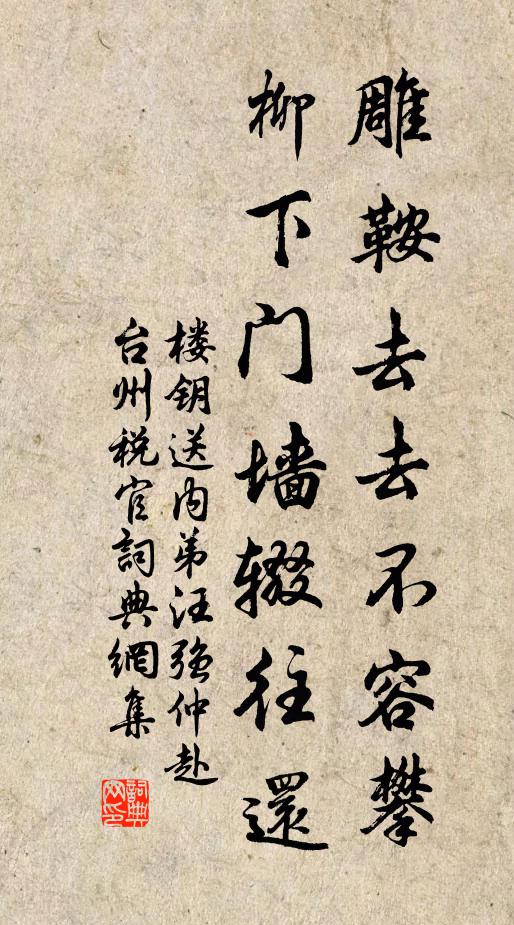 雕鞍去去不容攀
柳下门墙辍往還
楼钥送内弟汪强仲赴
台州税官詞典網集
詞典网印